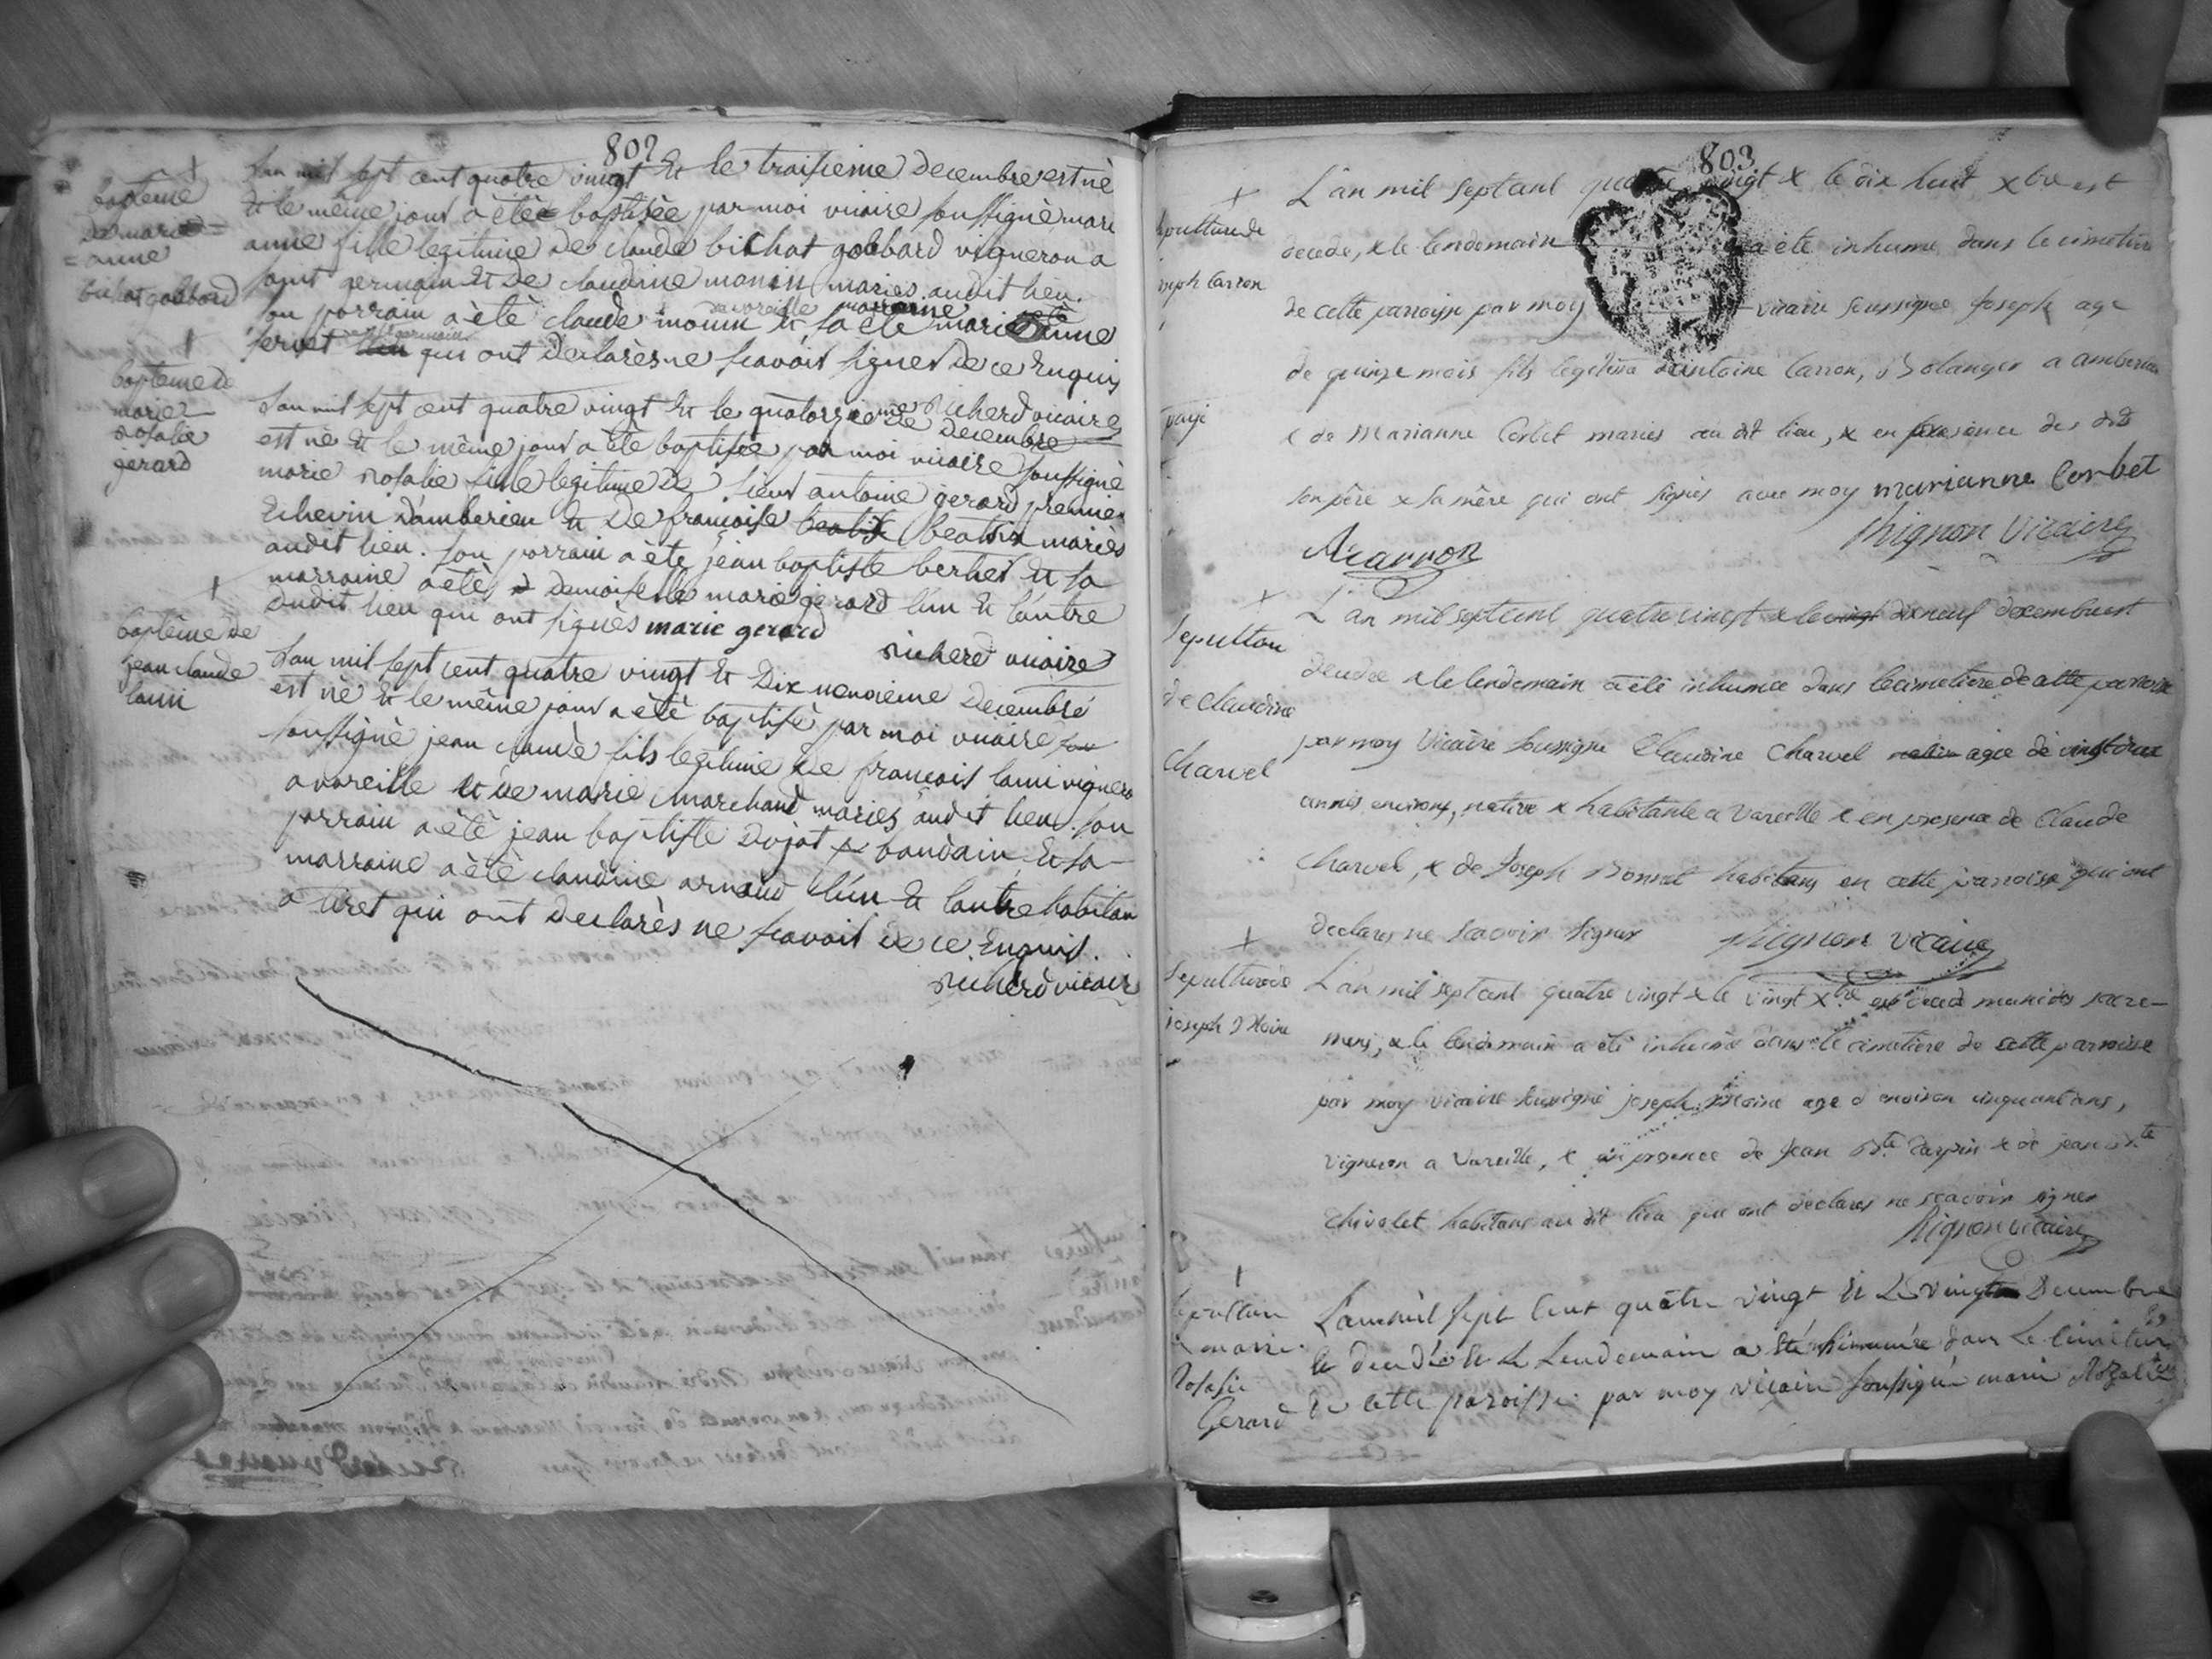 802
baptême
de marie =
= anne
bichat gobbard
L'an mil sept cent quatre vingt et le traisieme decembre est né
et le même jour a été baptisée par moi vicaire soussigné marie
anne fille legitime de claude bichat gobbard vigneron a
saint germain et de claudine monin mariés audit lieu.
son parrain a été claude monin de vareille et sa marraine a été marie anne
fervet qui ont declarés ne scavoir signer de ce enquis
richerd vicaire
baptême de
marie
rosalie
gerard
L'an mil sept cent quatre vingt et le quatorzieme decembre
est né et le même jour a été baptisée par moi vicaire soussigné
marie rosalie fille legitime de sieur antoine gerard premier
Echevin d'amberieu et de françoise beatrix mariés
audit lieu. son parrain a été jean baptiste berlier et sa
marraine a été demoiselle marie gerard l'un et l'autre
dudit lieu qui ont signés marie gerard
richerd vicaire
baptême de
jean claude
lami
L'an mil sept cent quatre vingt et dix neuvieme decembre
est né et le même jour a été baptisé par moi vicaire
soussigné jean claude fils legitime de françois lami vigneron
a vareille et de marie marchand mariés audit lieu. son
parrain a été jean baptiste dojat baudain et sa
marraine a été claudine arnaud l'un et l'autre habitan
a tiret qui ont declarès ne scavoir de ce Enquis.
richerd vicaire
803
sepulture de
joseph Carron
L'an mil septcent quatre vingt & le dix huit xbre est
decede, & le lendemain a été inhumé dans le cimetiere
de cette parroisse par moy vicaire soussigné Joseph age
de quinze mois fils legitime d'antoine Carron, Bolanger a amberieu
& de Marianne Corbet mariés au dit lieu, & en presence des dits
son père & sa mère qui ont signés avec moy marianne Corbet
Acarron
Mignon Vicaire
Sepulture
de Claudine
Charvel
L'an mil septcent quatre vingt & le dix neuf decembre est
decedee & le lendemain a été inhumée dans le cimetiere de cette parroisse
par moy Vicaire soussigné Claudine Charvel agée de vingt deux
années environ, native & habitante a Vareille & en presence de Claude
Charvel, & de Joseph Bonnet habitans en cette parroisse qui ont
declarés ne scavoir signer Mignon vicaire
Sepulture de
joseph Moine
L'an mil septcent quatre vingt & le vingt xbre est decedé muni des sacre-
mens, & le lendemain a été inhumé dans le cimetiere de cette parroisse
par moy vicaire soussigné joseph Moine agé d'environ cinquant ans,
vigneron a Vareille, & en presence de Jean Bte Carpin & de jean Bte
Chivolet habitans au dit lieu qui ont declarés ne scavoir signer
Mignon vicaire
Sepulture
marie
Rosalie
Gerard
L'an mil sept Cent quatre vingt et Le vingt Decembre
decedée et Le Lendemain a été inhumée dans Le Cimetiere
de cette paroisse par moy vicaire soussigné marie Rozalie